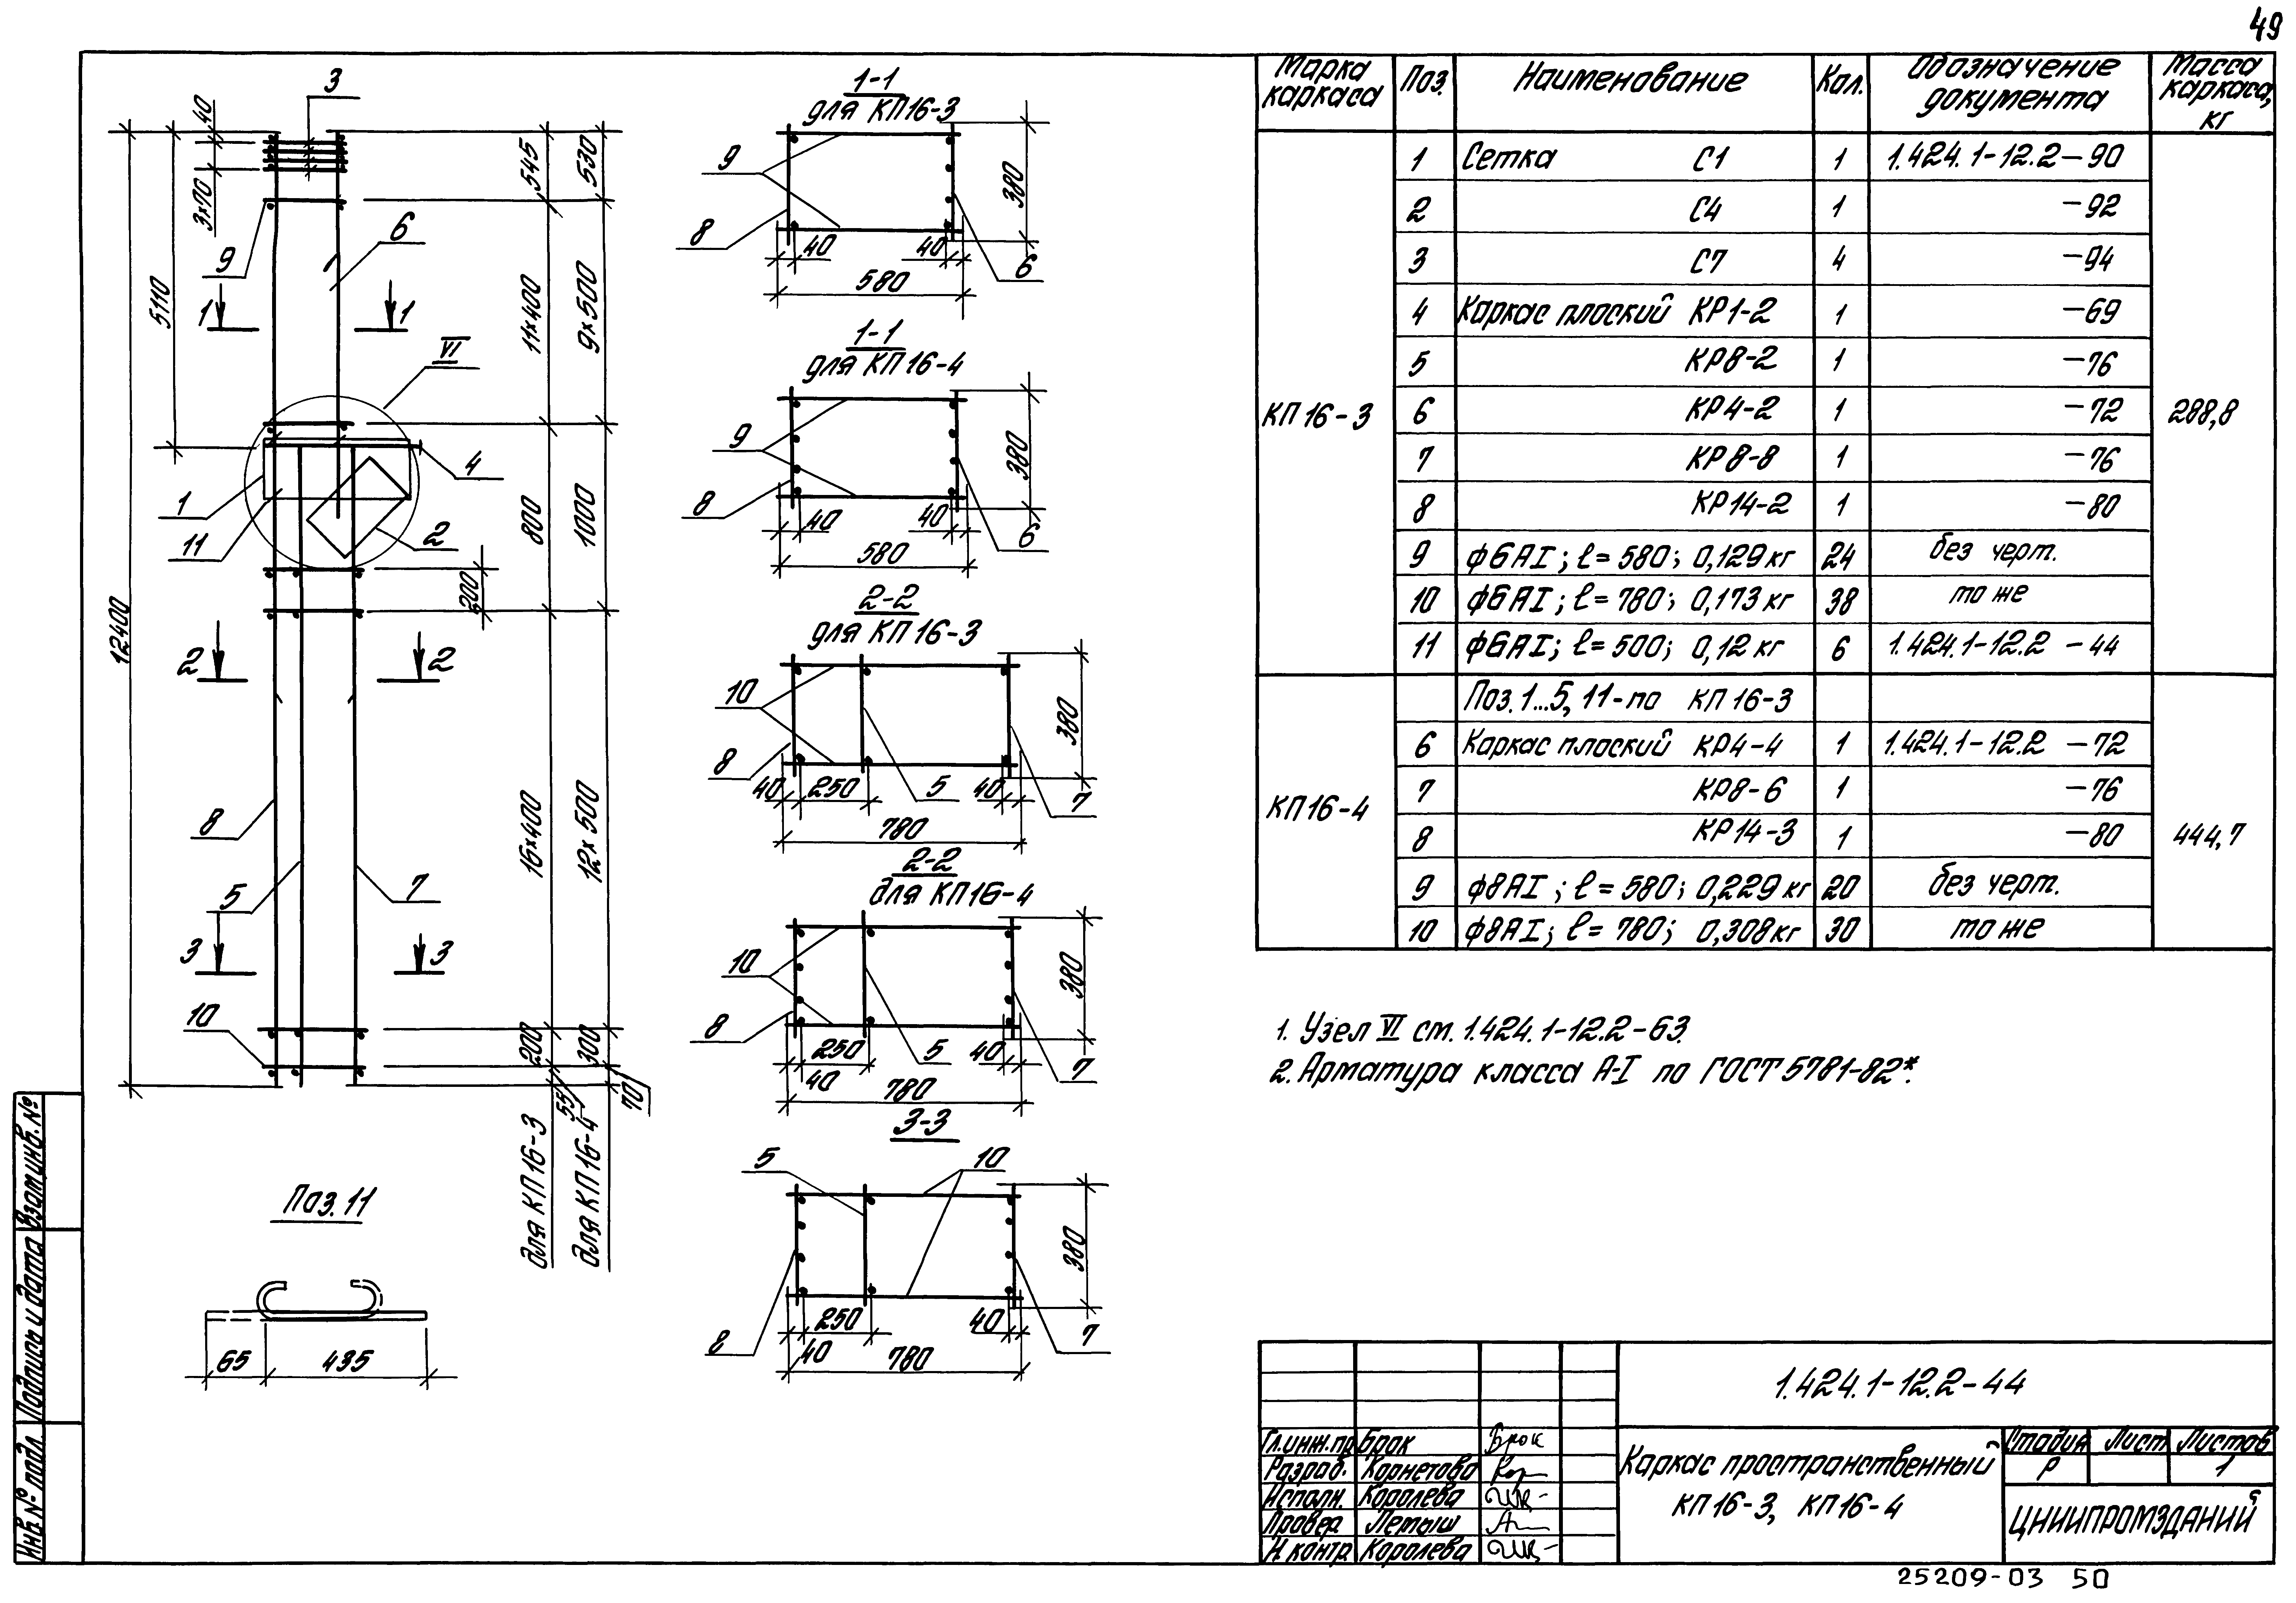 49
Марка каркаса | Поз. | Наименование | Кол. | Обозначение документа | Масса каркаса, кг
КП 16-3
1 Сетка С1 1 1.424.1-12.2-90
2 С4 1 -92
3 С7 4 -94
4 Каркас плоский КР1-2 1 -69
5 КР8-2 1 -76
6 КР4-2 1 -72
7 КР8-8 1 -76
8 КР14-2 1 -80
9 ф6АI; ℓ=580; 0,129кг 24 без черт.
10 ф6АI; ℓ=780; 0,173кг 38 то же
11 ф6АI; ℓ=500; 0,12 кг 6 1.424.1-12.2 -44
288,8
КП16-4
Поз. 1...5, 11-по КП 16-3
6 Каркас плоский КР4-4 1 1.424.1-12.2 -72
7 КР8-6 1 -76
8 КР14-3 1 -80
9 ф8АI; ℓ=580; 0,229кг 20 без черт.
10 ф8АI; ℓ=780; 0,308кг 30 то же
444,7
1. Узел VI см. 1.424.1-12.2-63.
2. Арматура класса А-I по ГОСТ 5781-82*.
3
40
3×70
5110
12400
545
530
9
6
1 1
11×400
9×500
VI
4
1
11
2
800
1000
200
2 2
8
5
7
16×400
12×500
3 3
10
200
300
55
70
для КП16-3
для КП16-4
Поз. 11
65 435
1-1
для КП16-3
9
8
6
40 40
580
380
1-1
для КП16-4
9
8
6
40 40
580
380
2-2
для КП16-3
10
8
5
7
40 250 40
780
380
2-2
для КП16-4
10
8
5
7
250 40
40
780
380
3-3
5
10
8
7
250 40
40
780
380
1.424.1-12.2-44
Гл.инж.пр Брок Брок
Разраб. Корнетова Кор
Исполн. Королева
Провер. Петыш
Н контр. Королева
Каркас пространственный
КП16-3, КП16-4
Стадия Лист Листов
Р 1
ЦНИИПРОМЗДАНИЙ
Взам инв. №
Подпись и дата
Инв.№ подл.
25209-03 50